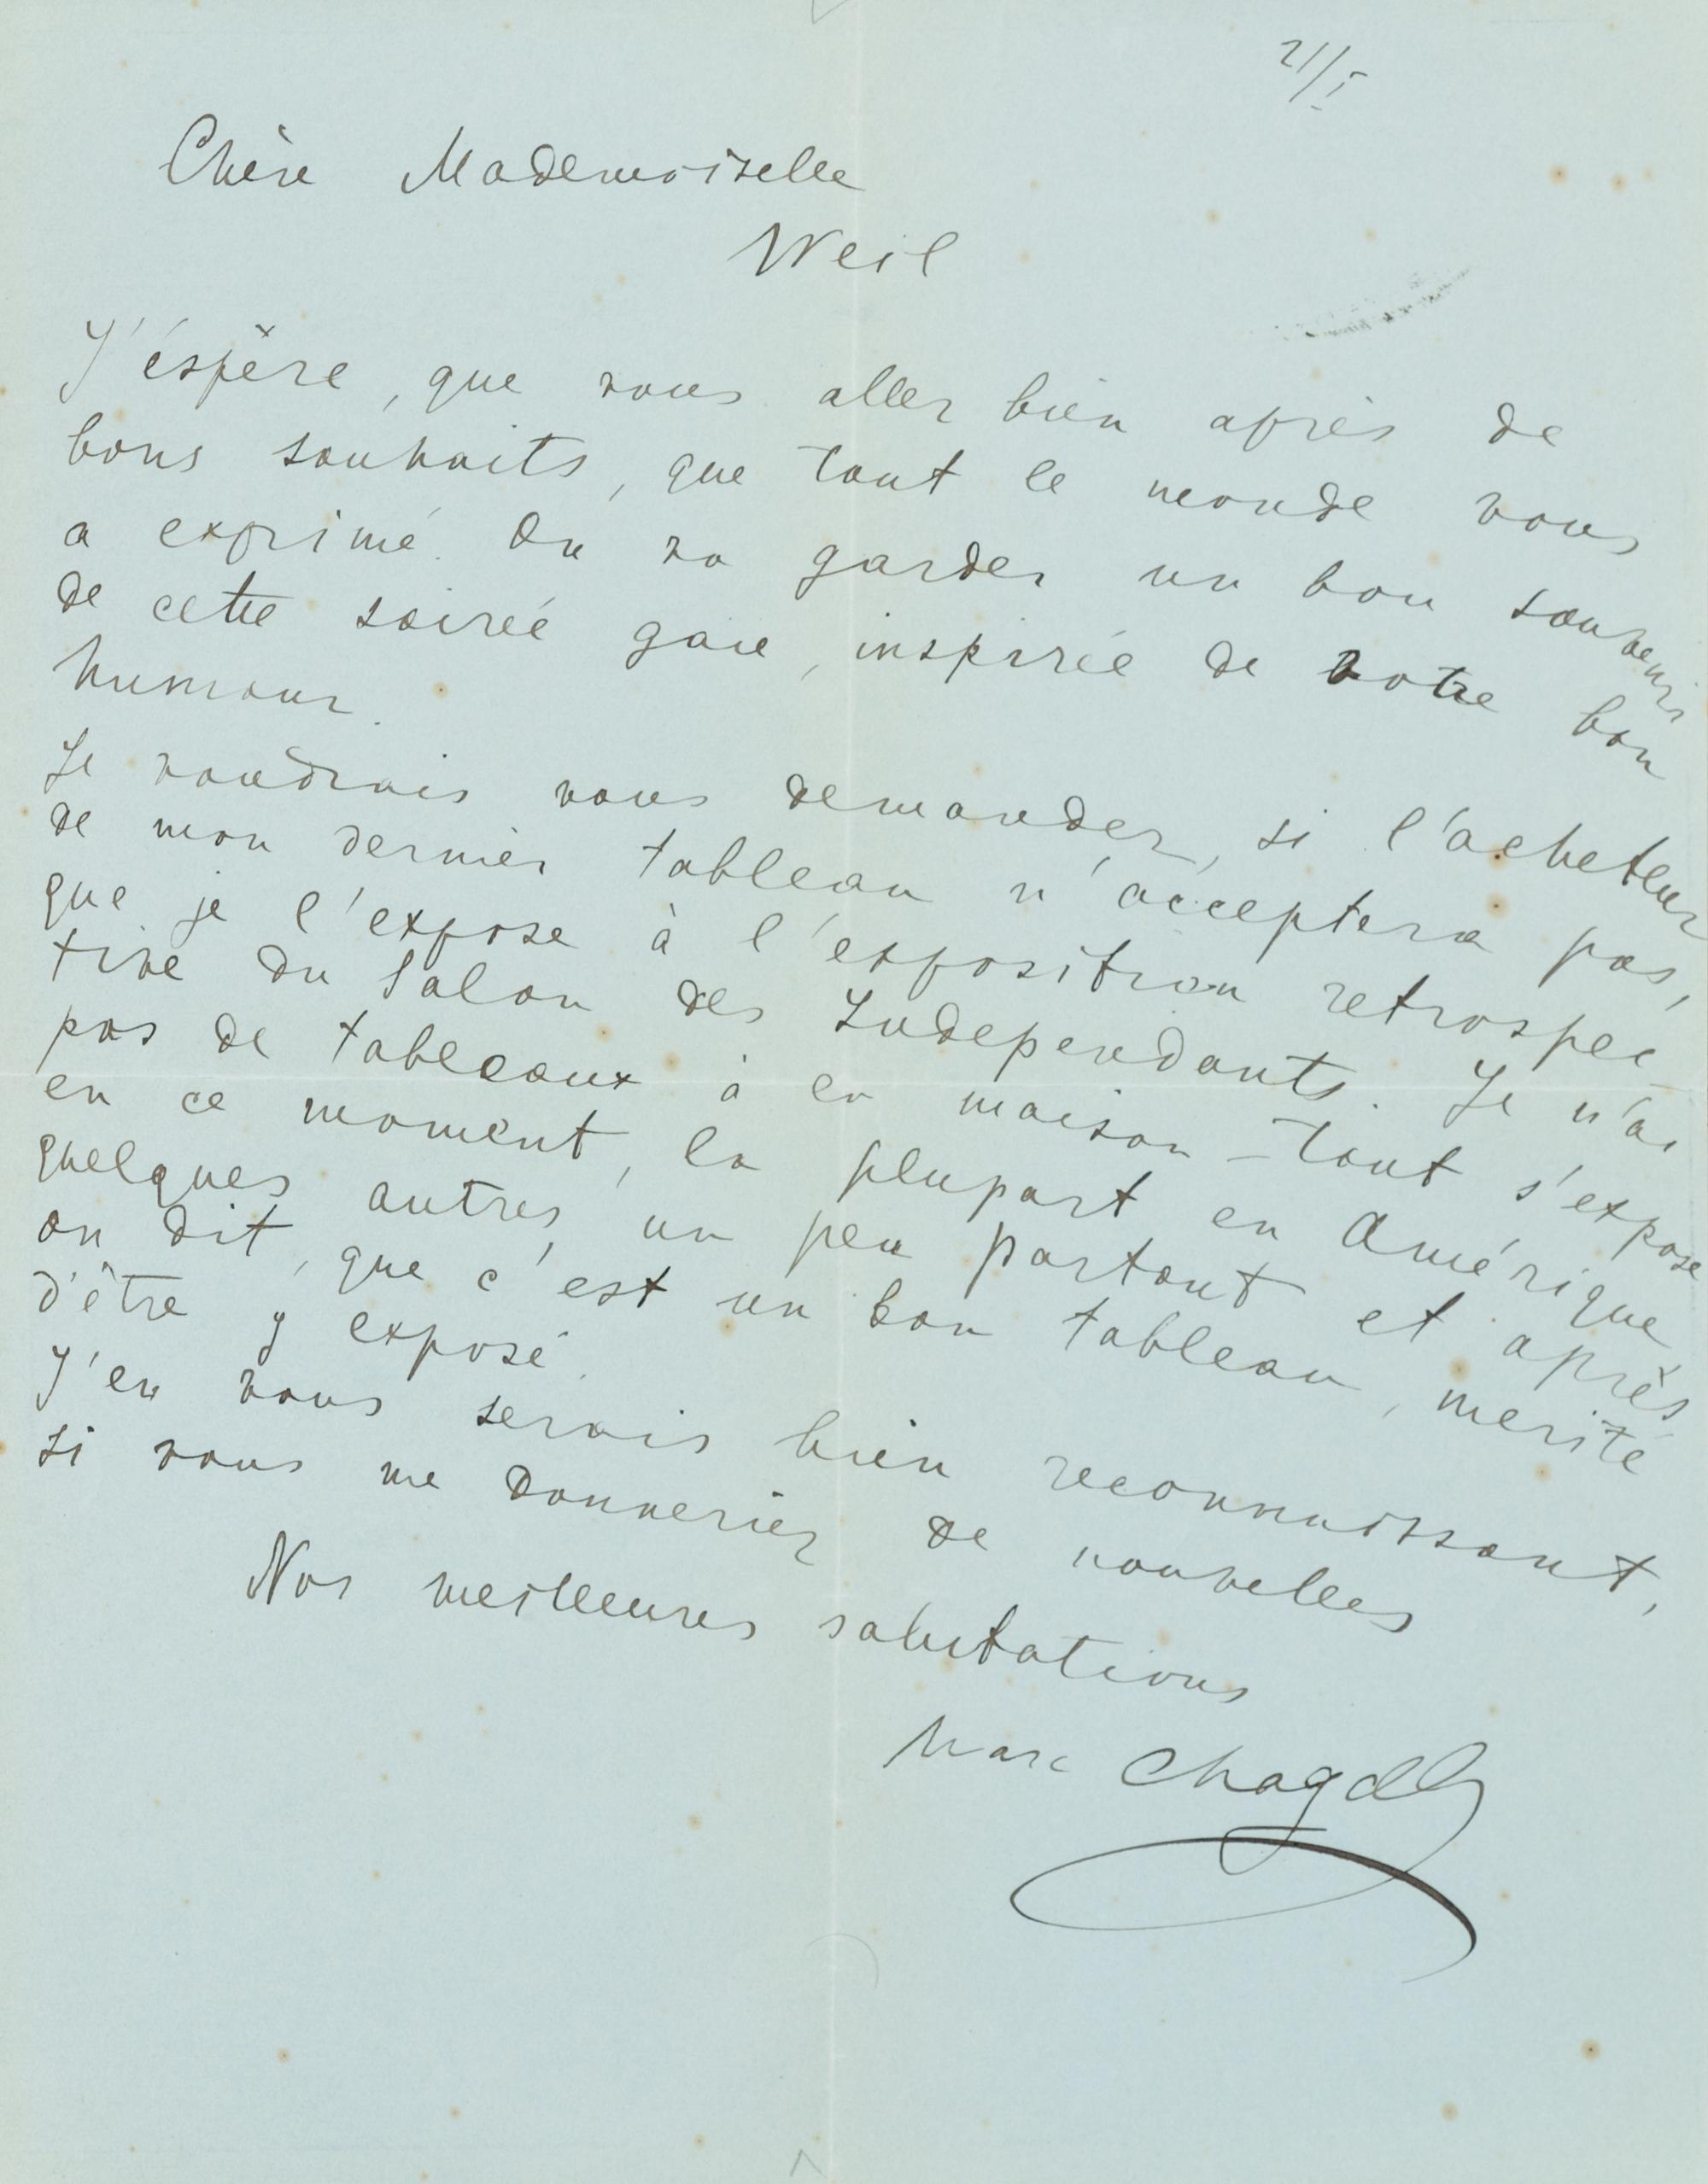 21/I
Chère Mademoiselle
Weil
J'éspère, que vous aller bien après de
bons souhaits, que tout le monde vous
a exprimé. On va garder un bon souvenir
de cette soireé gaie, inspirée de votre bon
humour.
Je voudrais vous demander, si l'acheteur
de mon dernier tableau n'acceptera pas,
que je l'expose à l'exposition retrospec-
tive du Salon des Independants. Je n'ai
pas de tableaux à la maison - tout s'expose
en ce moment, la plupart en Amérique
quelques autres, un peu partout et après
on dit, que c'est un bon tableau, merité
d'être y exposé.
J'en vous serais bien reconnaissant,
si vous me donneriez de nouvelles
Nos meilleures salutations
Marc Chagall